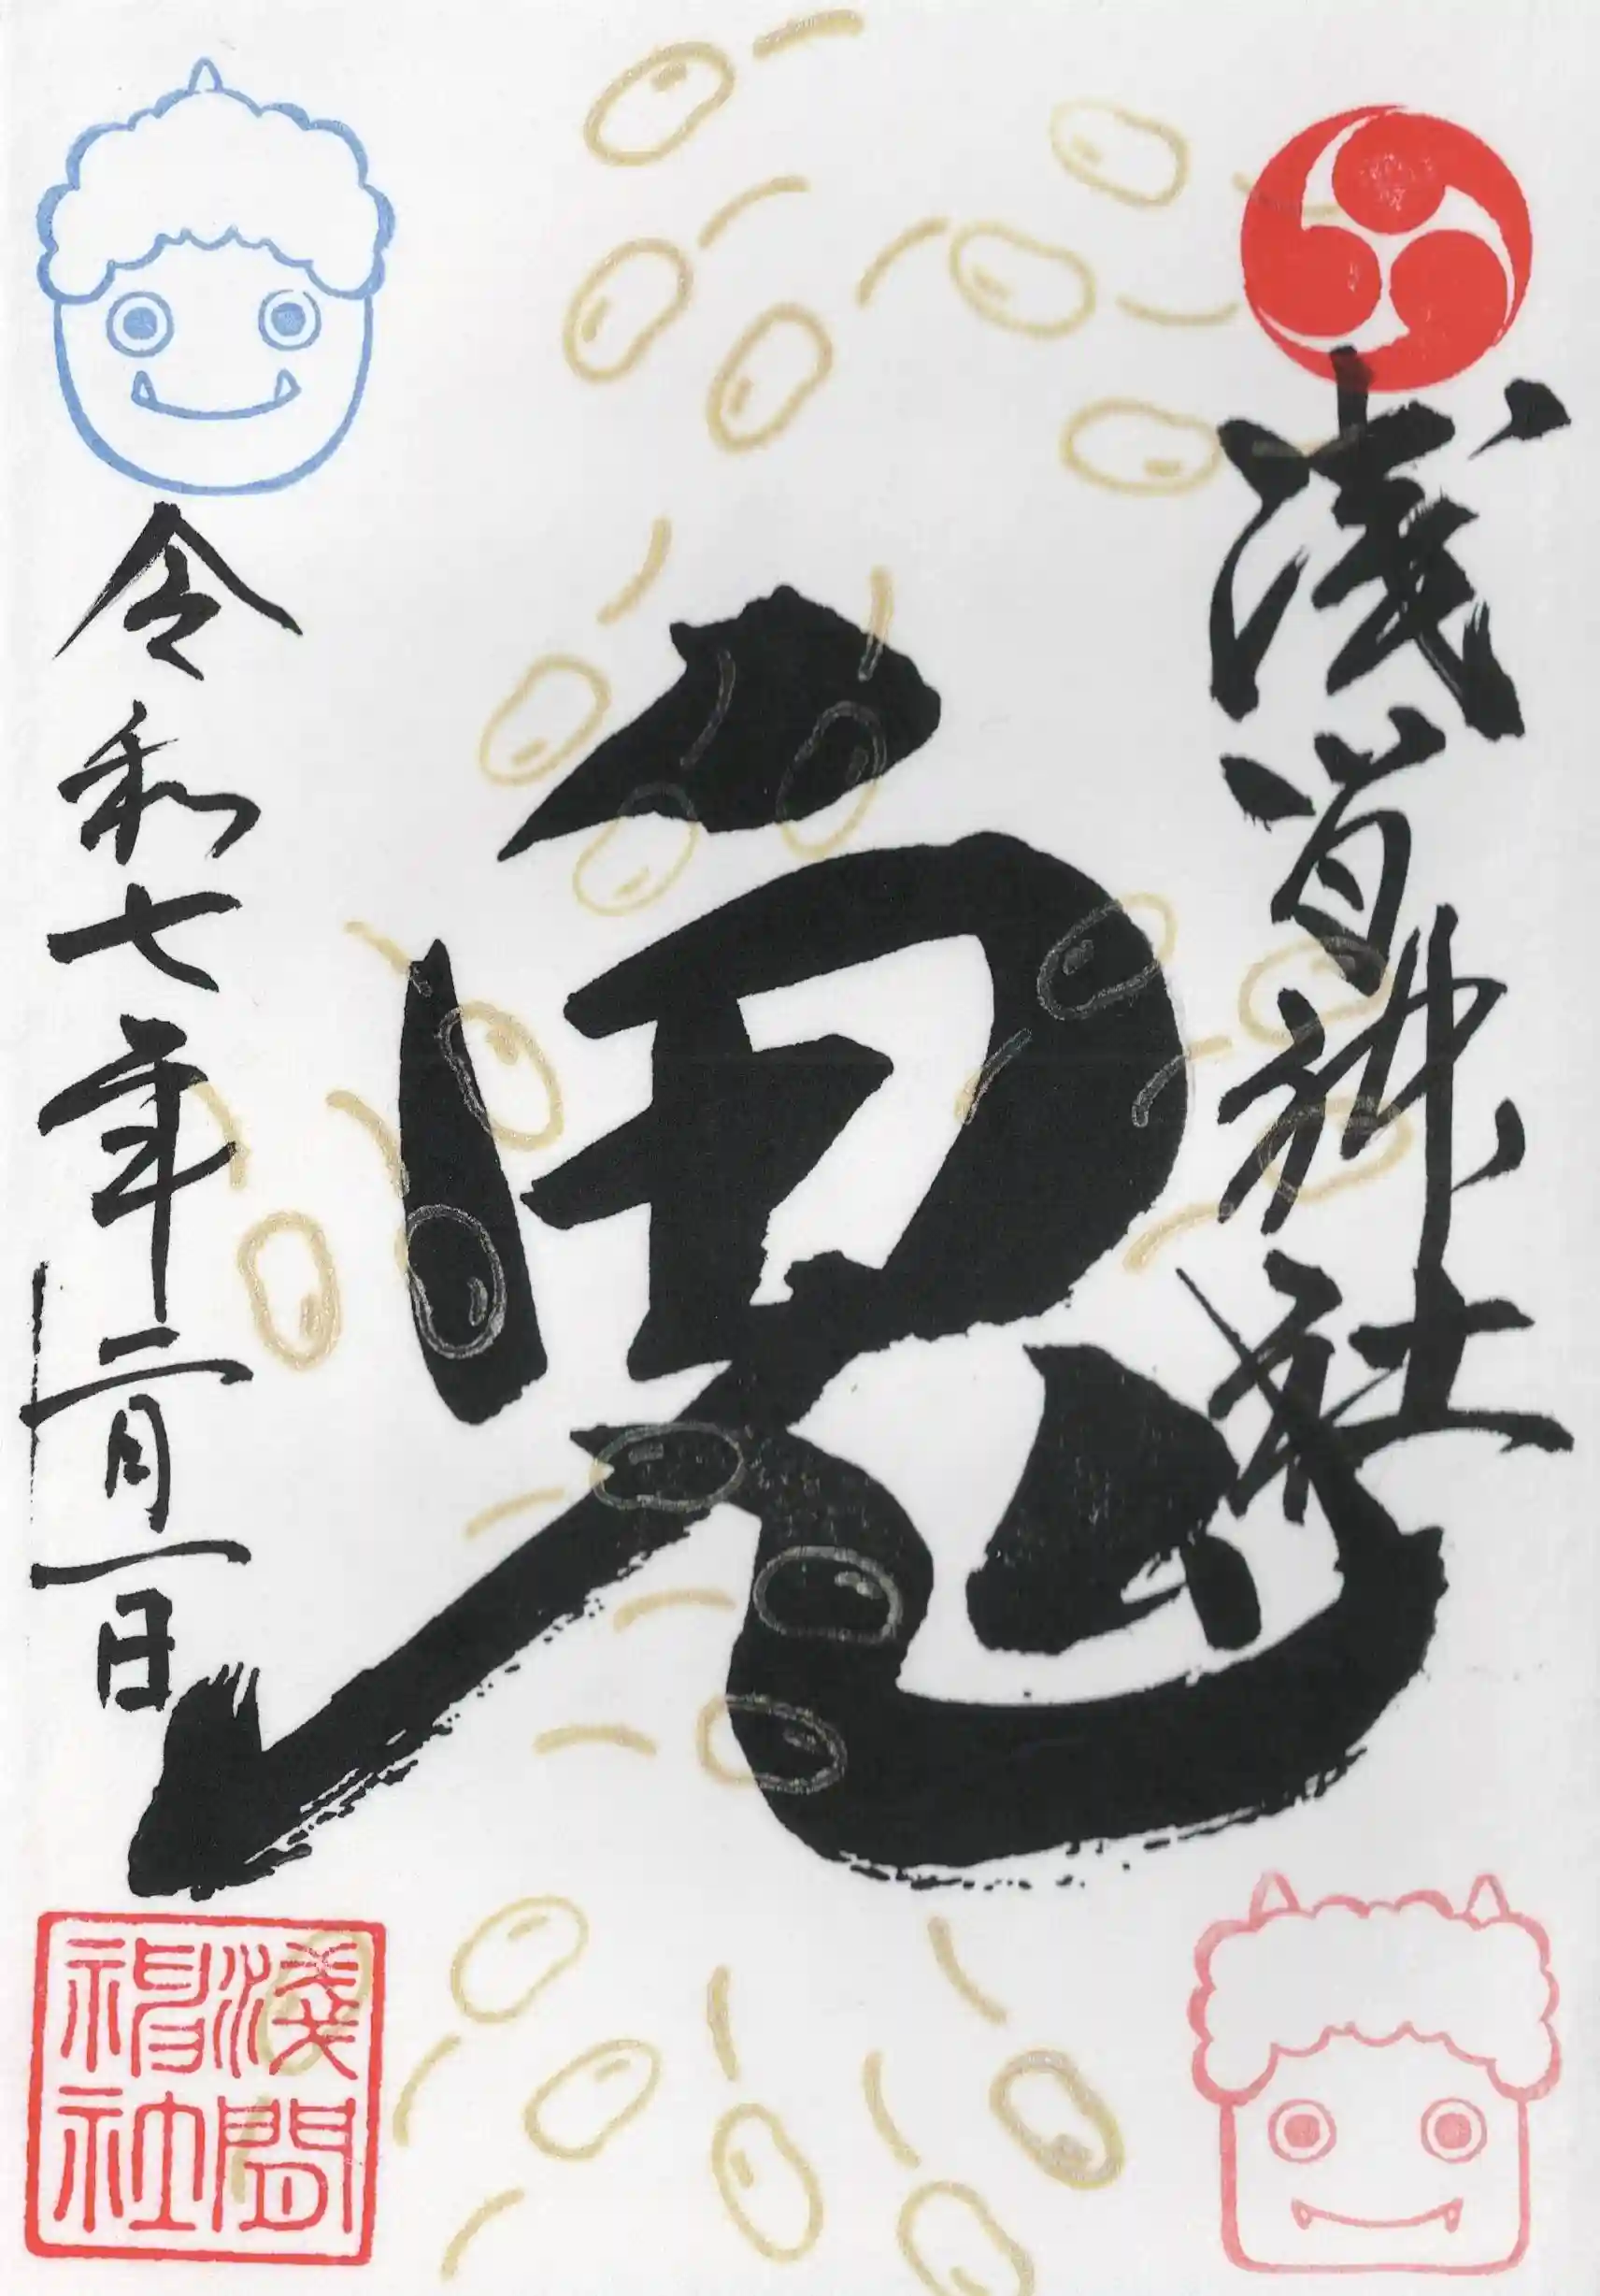 浅間神社
鬼
令和七年二月一日
浅間
神社